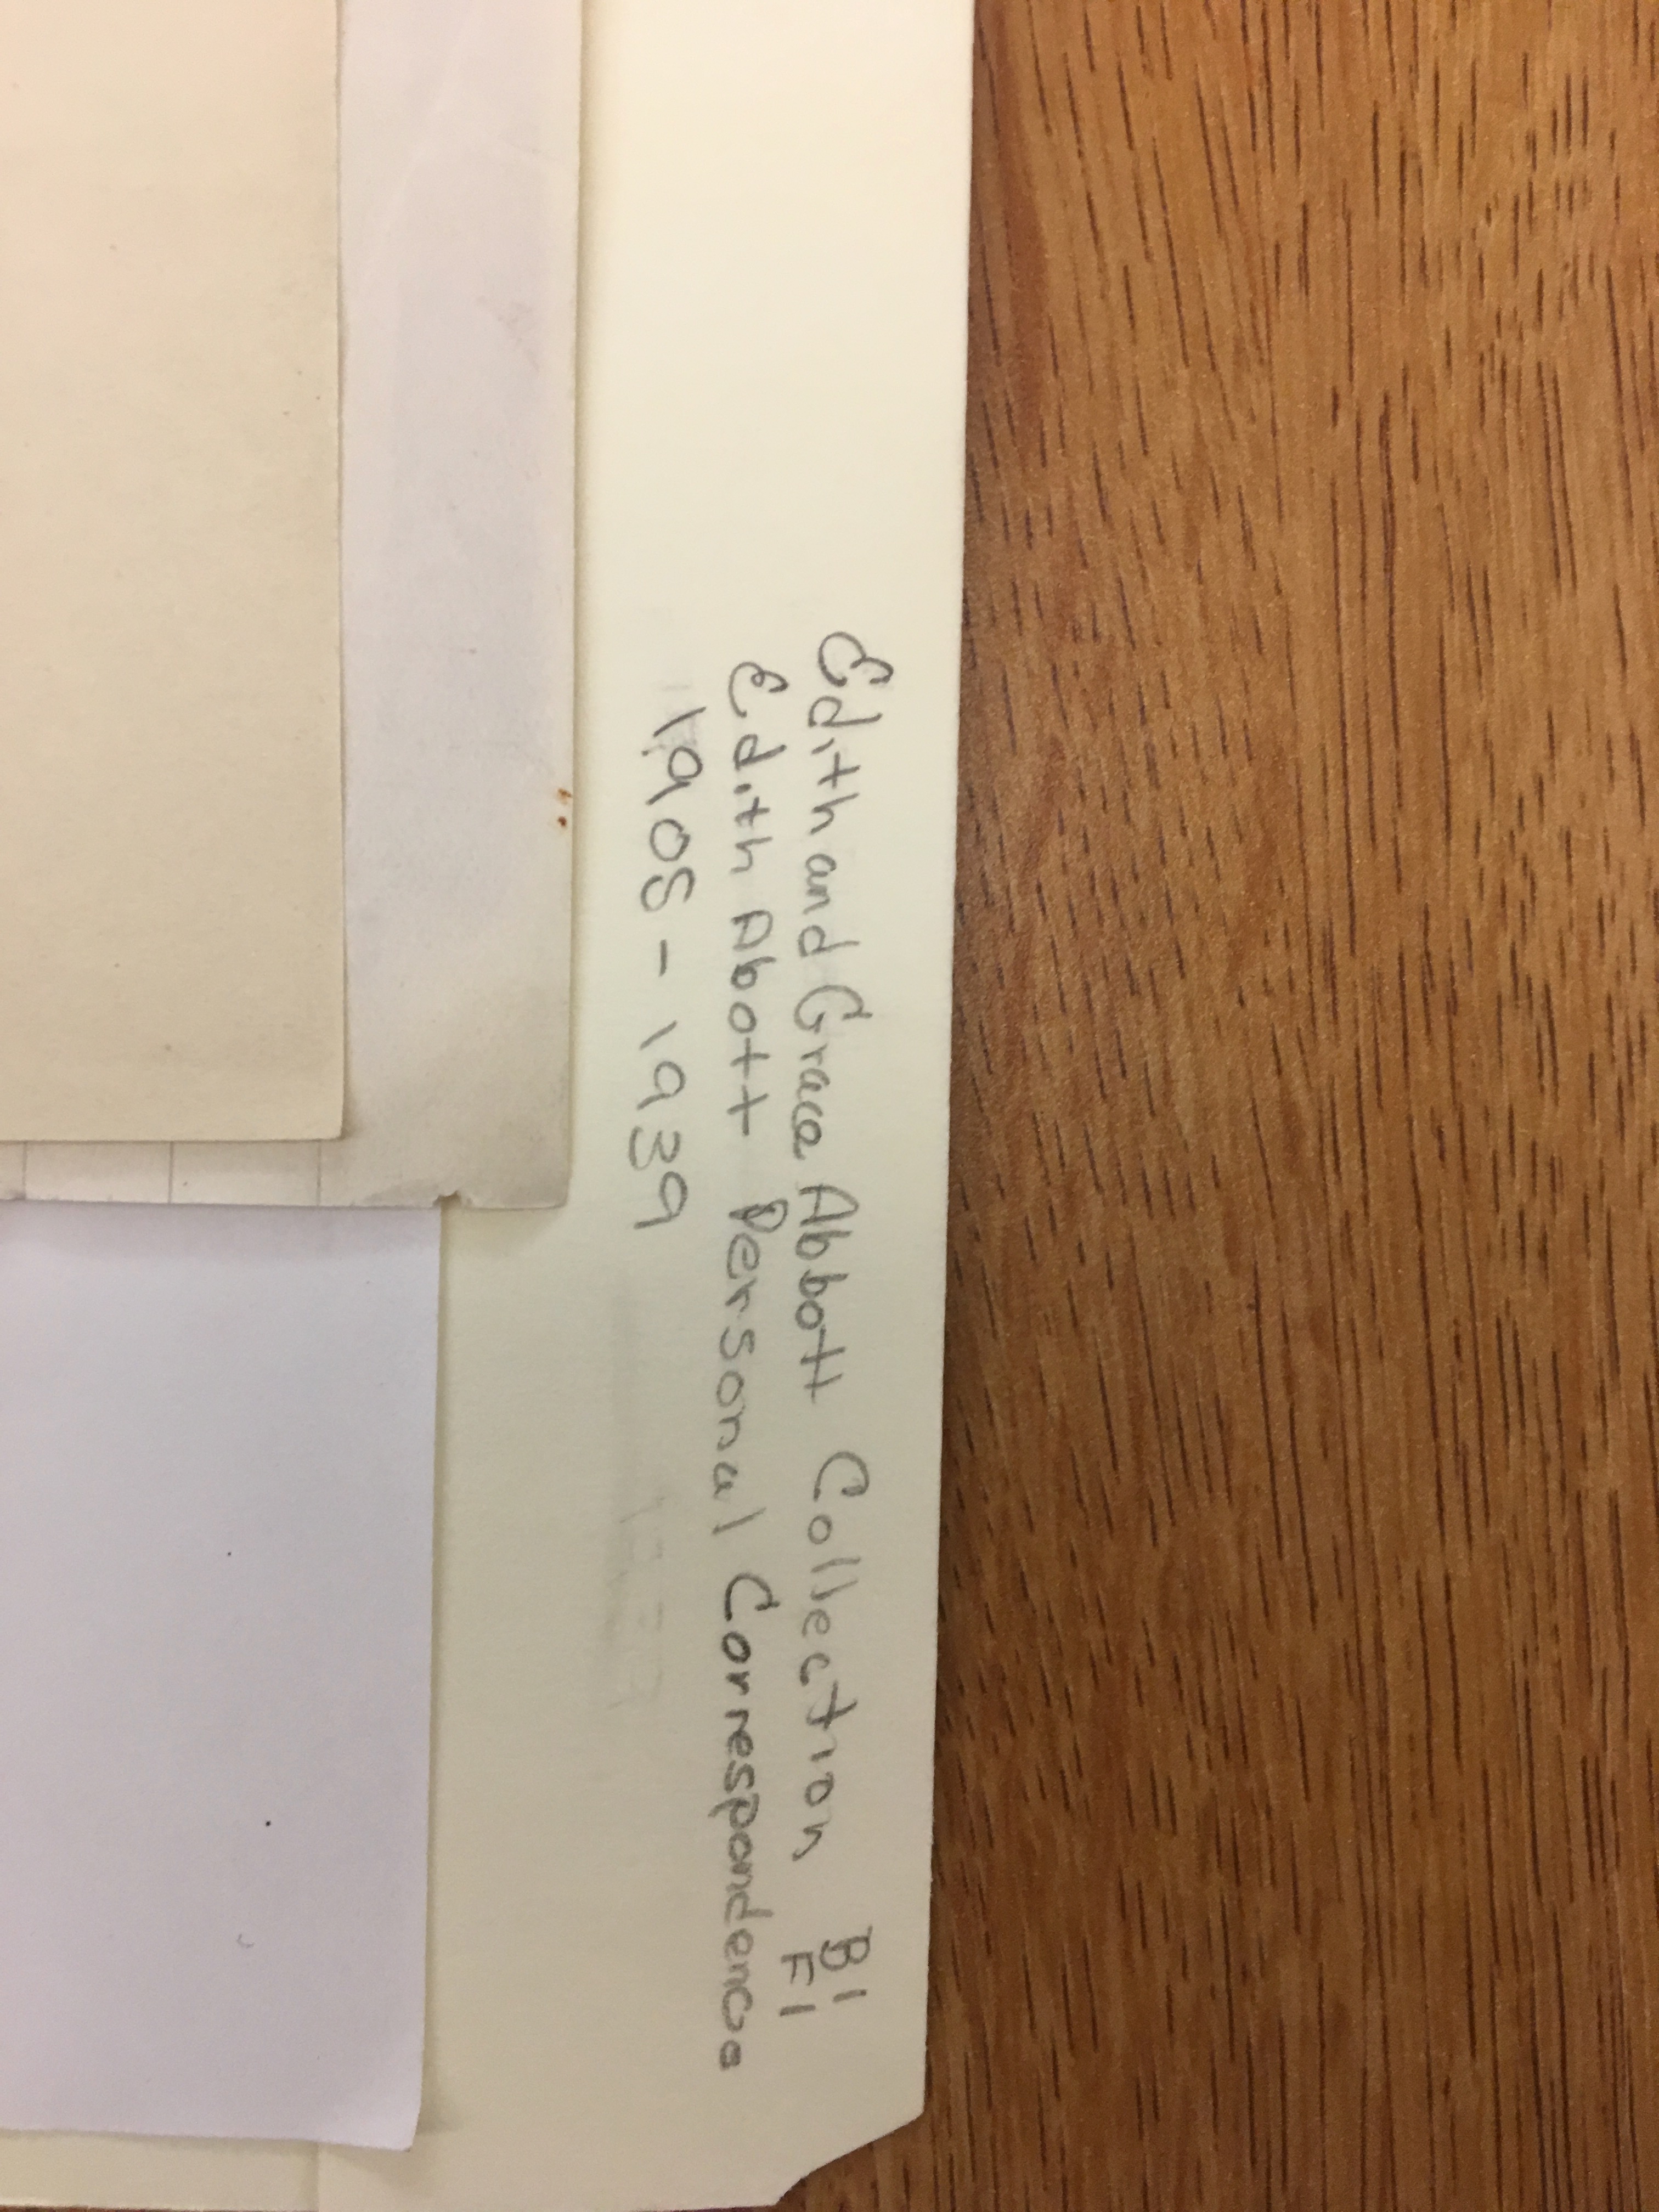 Edith and Grace Abbott Collection, B1
F1
Edith Abott Personal Correspondence
1905 - 1939